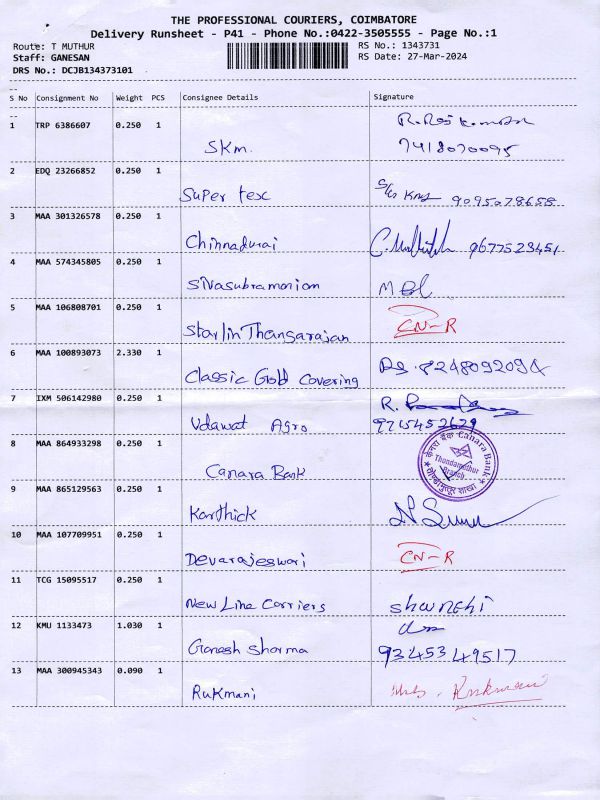 THE PROFESSIONAL COURIERS, COIMBATORE
Delivery Runsheet - P41 - Phone No.:0422-3505555 - Page No.:1
Route: T MUTHUR RS No.: 1343731
Staff: GANESAN RS Date: 27-Mar-2024
DRS No.: DCJB134373101
--
S No Consignment No Weight PCS Consignee Details Signature
--
1 TRP 6386607 0.250 1 SKM. 7418070095
2 EDQ 23266852 0.250 1 Super tex 9095078655
3 MAA 301326578 0.250 1 Chinnadurai 9677523451
4 MAA 574345805 0.250 1 Sivasubramaniam
5 MAA 106808701 0.250 1 Starlin Thangarajan CN-R
6 MAA 100893073 2.330 1 Classic Gold Covering
7 IXM 506142980 0.250 1 Udawat Agro R.
8 MAA 864933298 0.250 1 Canara Bank
केनरा बैंक Canara Bank
Thondamuthur
Branch
9 MAA 865129563 0.250 1 Karthick
10 MAA 107709951 0.250 1 Devarajeswari CN-R
11 TCG 15095517 0.250 1 New Line Carriers
12 KMU 1133473 1.030 1 Ganesh Sharma 9345349517
13 MAA 300945343 0.090 1 Rukmani Rukmani